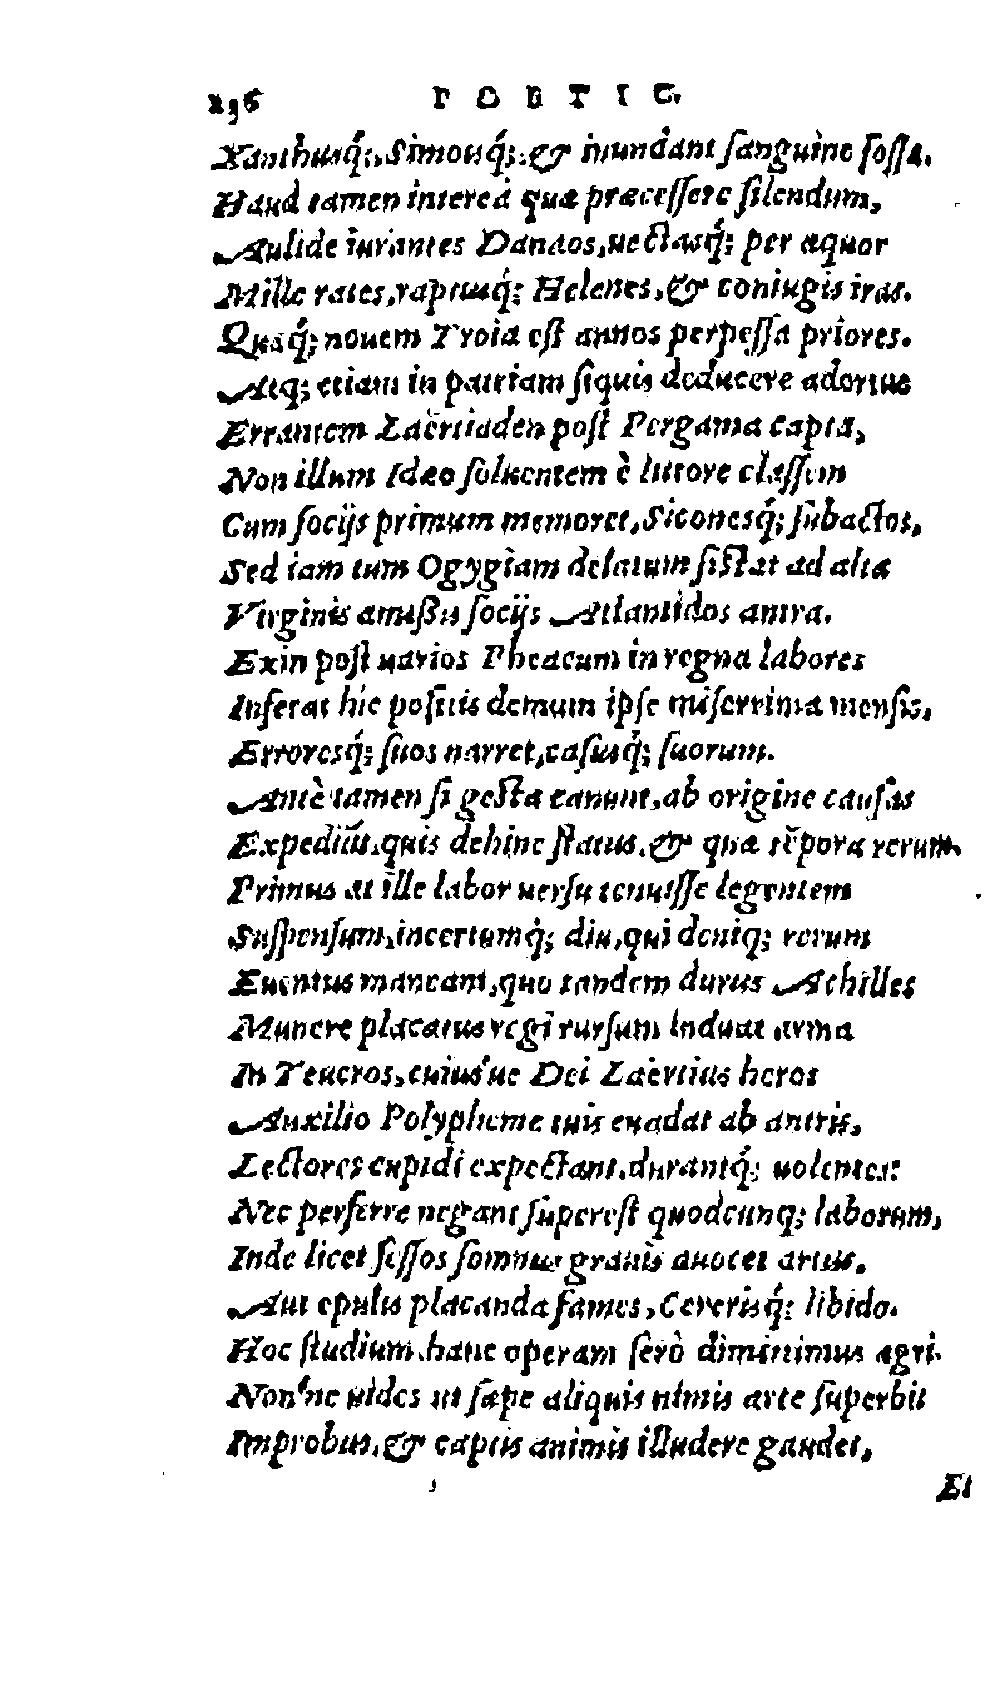 236 POETIC.
Xanthusq́;, Simoisq́;. & inundant sanguìne fossa.
Haud tamen intereà quæ præcessere silendum,
Aulide iurantes Danaos, uectasq́; per æquor
Mille rates, raptumq́; Helenes, & coniugis iras.
Quæq́; nouem Troia est annos perpessa priores.
Atq; etiam in patriam siquis deducere adortus
Errantem Laërtiaden post Pergama capta,
Non illum Idæo soluentem è littore classem
Cum socijs primum memoret, Siconesq́; subactos,
Sed iam tum Ogygiam delatum sistat ad alta
Virginis amißis socijs Atlantidos antra.
Exin post uarios Pheacum in regna labores
Inferat hic positis demum ipse miserrima mensis,
Erroresq́; suos narret, casusq́; suorum.
Antè tamen si gesta canunt, ab origine causas
Expediũt. quis dehinc status, & quæ tẽpora rerum.
Primus at ille labor uersu tenuisse legentem
Suspensum, incertumq́; diu, qui deniq; rerum
Euentus maneant, quo tandem durus Achilles
Munere placatus regi rursum induat arma
In Teucros, cuius'ue Dei Laërtius heros
Auxilio Polypheme tuis euadat ab antris,
Lectores cupidi expectant, durantq́; uolentes:
Nec perferre negant superest quodcunq; laborum,
Inde licet fessos somnus grauis auocet artus.
Aut epulis placanda fames, Cererisq́; libido.
Hoc studium, hanc operam serò dimittimus ægri.
Non'ne uides ut sæpe aliquis nimis arte superbit
Improbus, & captis animis illudere gaudet,
Et